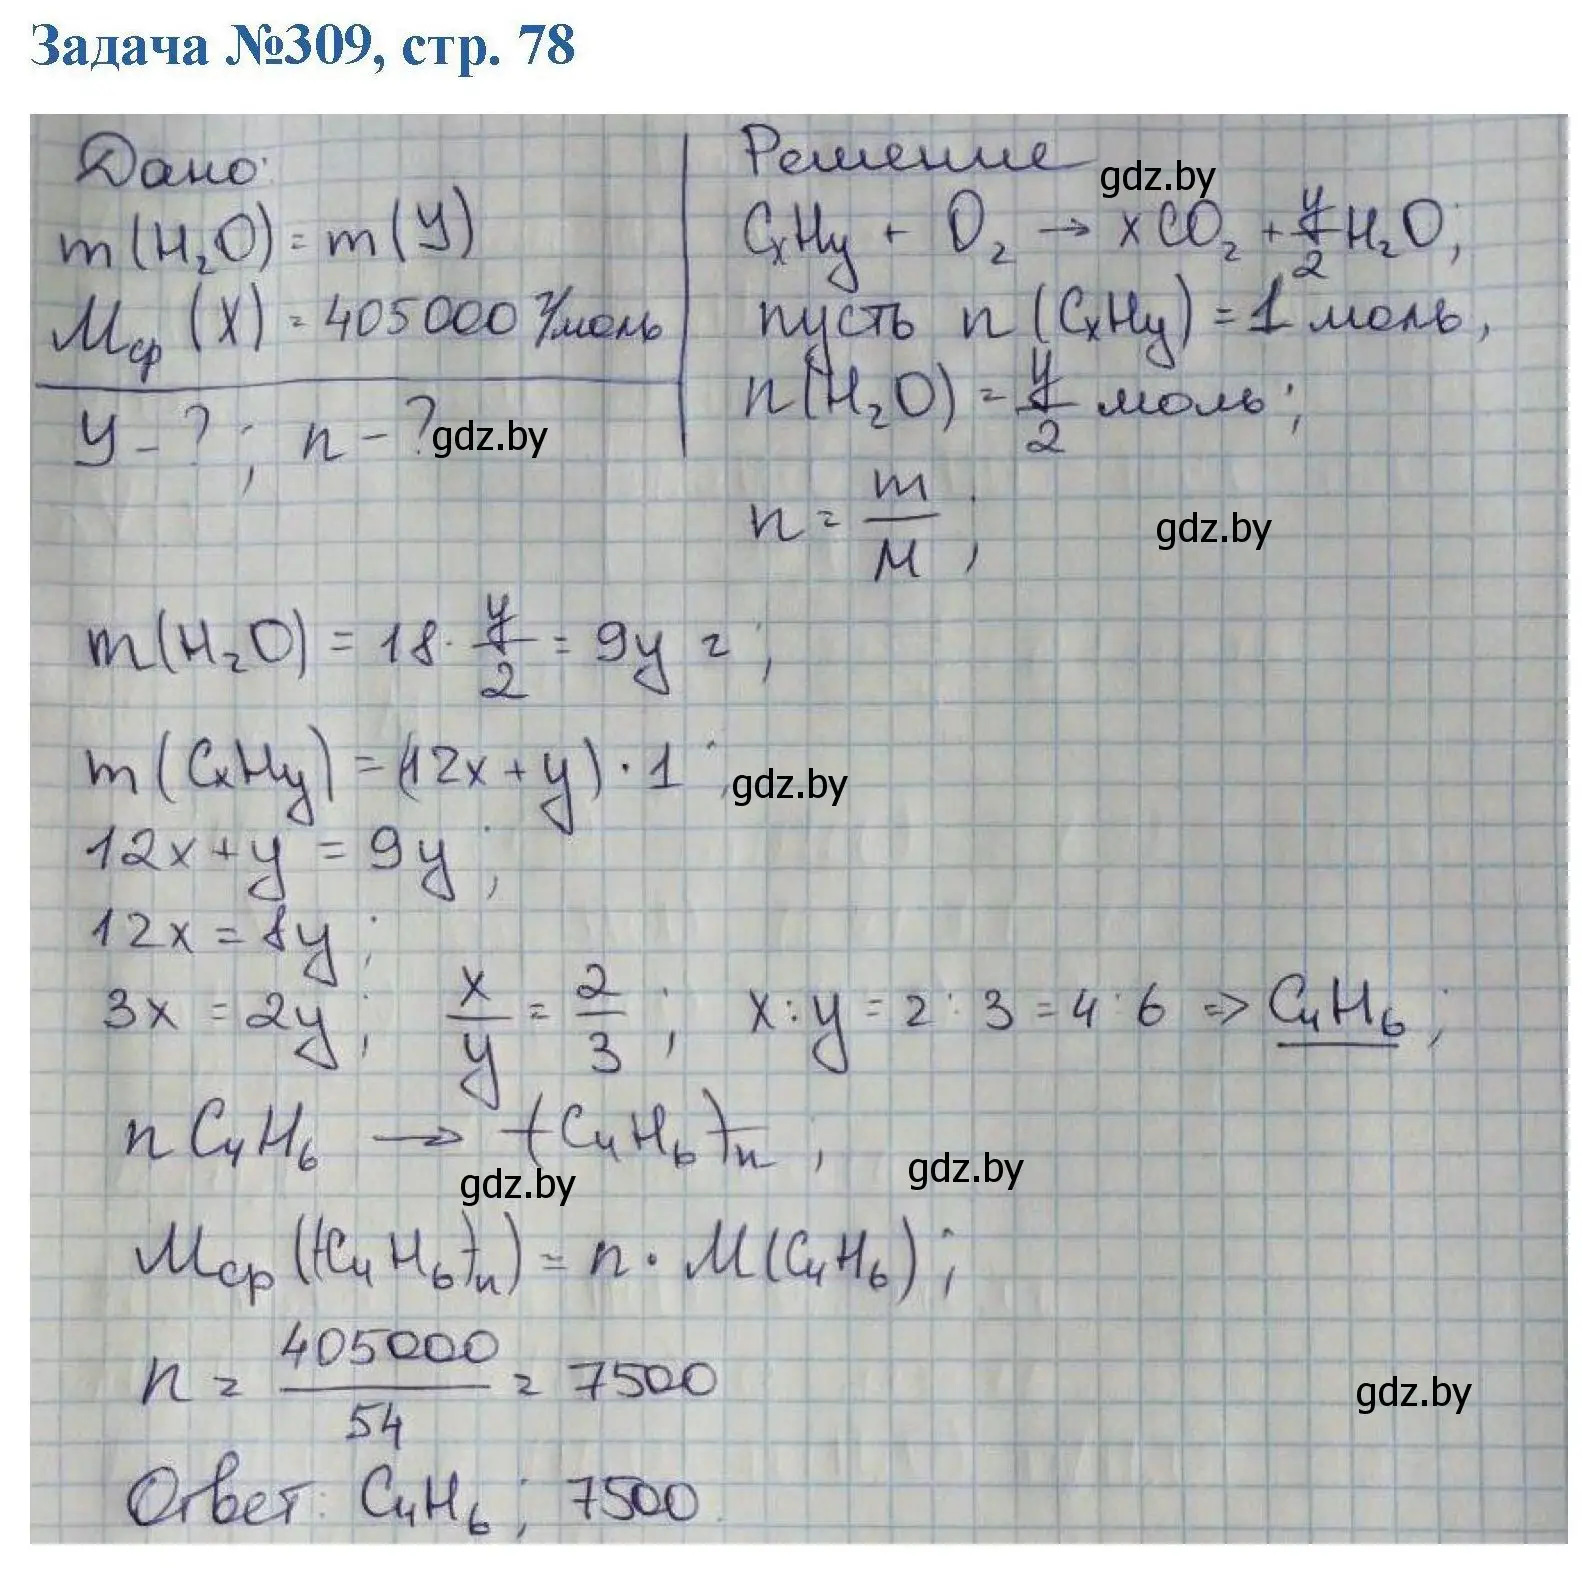 Задача №309, стр. 78
Дано:
m(H₂O) = m(Y)
Mср (X) = 405000 г/моль
Y - ? ; n - ?
gdz.by
Решение
gdz.by
CxHy + O₂ → xCO₂ + y/2 H₂O;
пусть n (CxHy) = 1 моль,
n(H₂O) = y/2 моль;
n = m/M;
gdz.by
m(H₂O) = 18 · y/2 = 9y г;
m(CxHy) = (12x + y) · 1;
gdz.by
12x + y = 9y;
12x = 8y;
3x = 2y; x/y = 2/3; x : y = 2 : 3 = 4 : 6 => C₄H₆;
n C₄H₆ → -(C₄H₆)-n;
gdz.by
gdz.by
Mср (-(C₄H₆)-n) = n · M(C₄H₆);
n = 405000/54 = 7500
gdz.by
Ответ: C₄H₆; 7500.